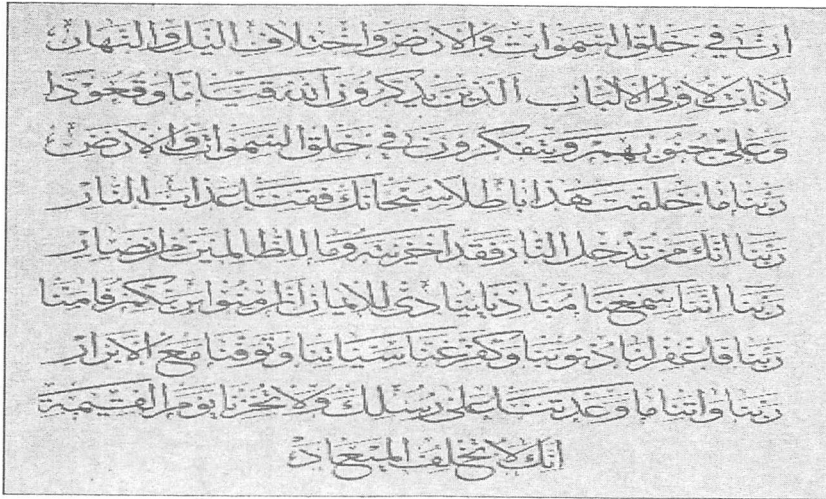 ان في خلق السموات والارض واختلاف الليل والنهار
لآيات لاولى الالباب الذين يذكرون الله قياما وقعودا
وعلى جنوبهم ويتفكرون في خلق السموات والارض
ربنا ما خلقت هذا باطلا سبحانك فقنا عذاب النار
ربنا انك من تدخل النار فقد اخزيته وما للظالمين من انصار
ربنا اننا سمعنا مناديا ينادى للايمان ان امنوا بربكم فامنا
ربنا فاغفر لنا ذنوبنا وكفر عنا سياتنا وتوفنا مع الابرار
ربنا واتنا ما وعدتنا على رسلك ولا تخزنا يوم القيمة
انك لا تخلف الميعاد